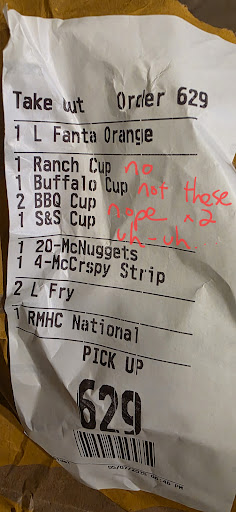 Take out Order 629
1 L Fanta Orange
1 Ranch Cup no
1 Buffalo Cup not these
2 BBQ Cup nope x2
1 S&S Cup uh-uh
1 20-McNuggets
1 4-McCrspy Strip
2 L Fry
1 RMHC National
PICK UP
629